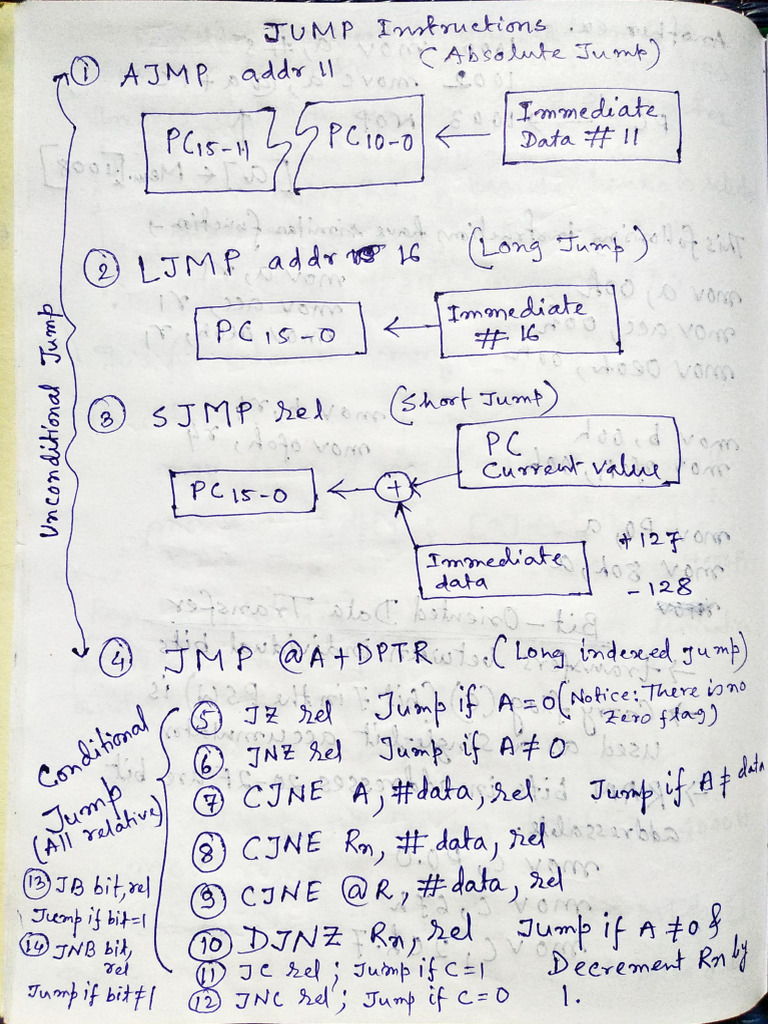 JUMP Instructions.
① AJMP addr 11 (Absolute Jump)
PC15-11 PC10-0 ← Immediate
Data # 11
② LJMP addr 16 (Long Jump)
PC 15-0 ← Immediate
# 16
③ SJMP rel (Short Jump)
PC
Current value
PC 15-0 ← +
Immediate
data
+127
-128
④ JMP @A+DPTR (Long indexed jump)
Unconditional Jump
⑤ JZ rel Jump if A=0 (Notice: There is no
Zero flag)
⑥ JNZ rel Jump if A≠0
⑦ CJNE A, #data, rel Jump if A≠data
⑧ CJNE Rn, # data, rel
⑨ CJNE @R, #data, rel
⑩ DJNZ Rn, rel Jump if A≠0 &
Decrement Rn by
1.
⑪ JC rel ; Jump if C=1
⑫ JNC rel ; Jump if C=0
Conditional
Jump
(All relative)
⑬ JB bit, rel
Jump if bit=1
⑭ JNB bit,
rel
Jump if bit≠1